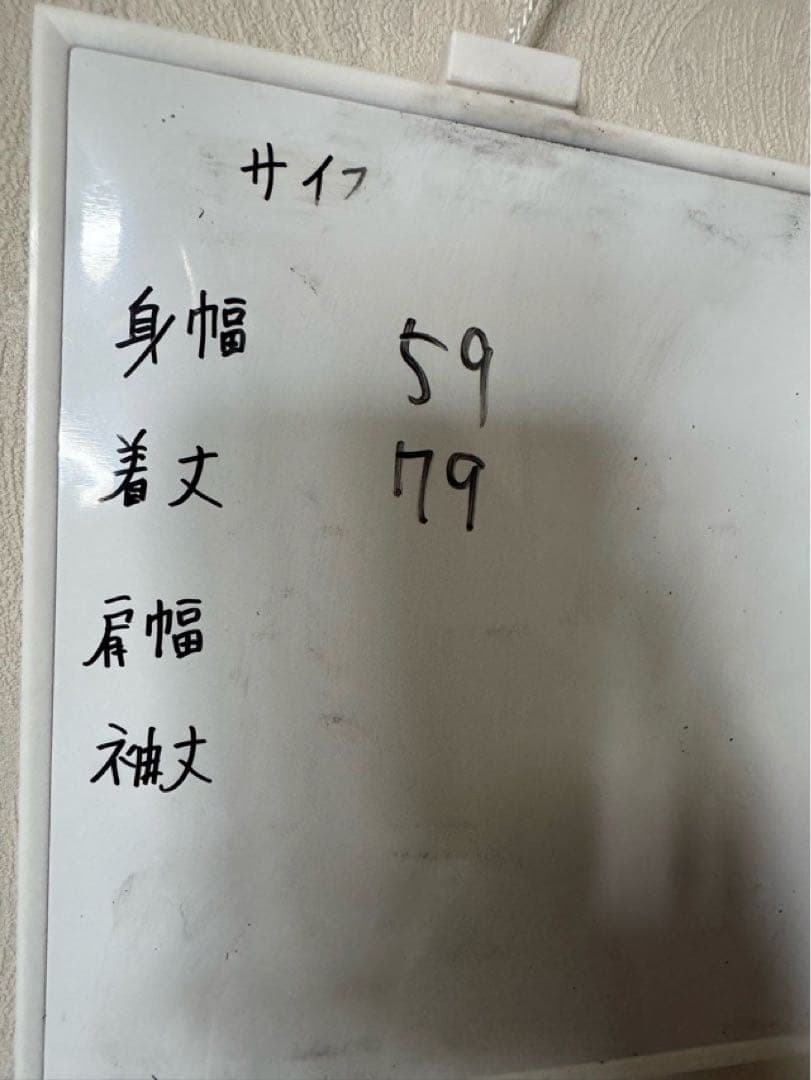 サイフ
身幅 59
着丈 79
肩幅
袖丈